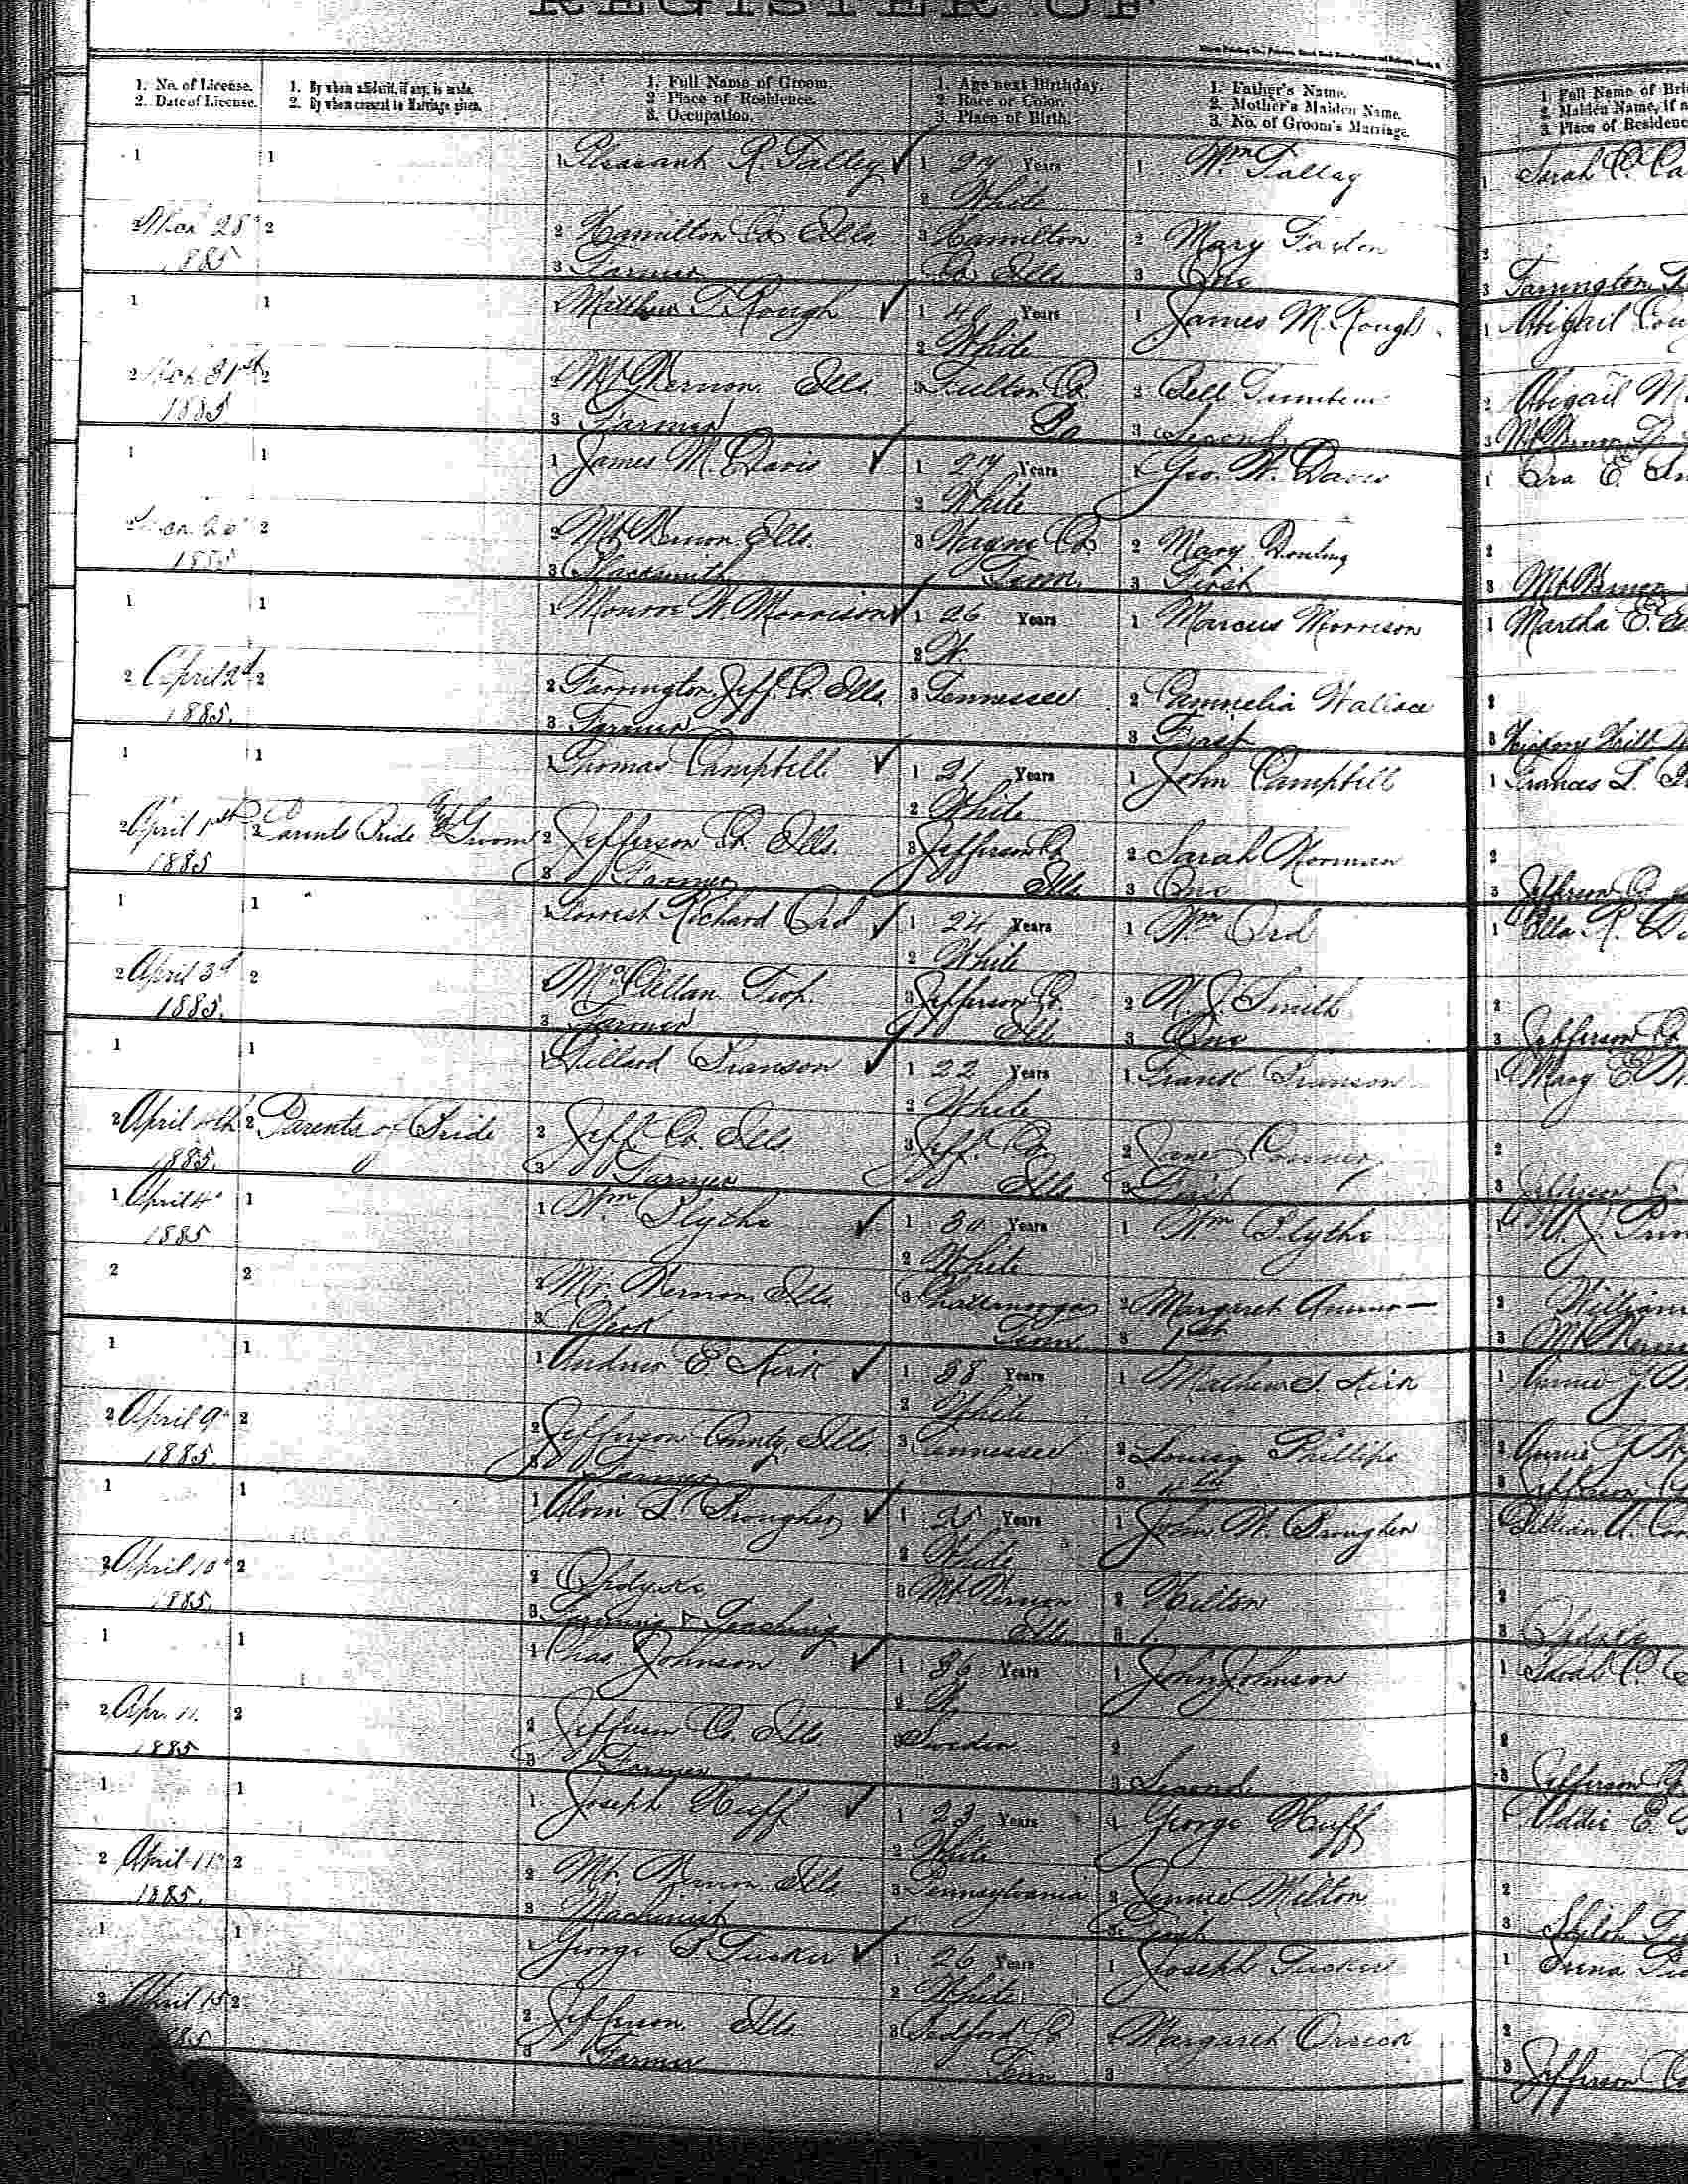 REGISTER OF
1. No. of License.
2. Date of License.
1. By whom affidavit, if any, is made.
2. By whom consent to Marriage given.
1. Full Name of Groom.
2. Place of Residence.
3. Occupation.
1. Age next Birthday.
2. Race or Color.
3. Place of Birth.
1. Father's Name.
2. Mother's Maiden Name.
3. No. of Groom's Marriage.
1. Full Name of Bri
2. Maiden Name, if a
3. Place of Residenc
1 1 1 Pleasant R. Talley ✓ 1 27 Years 1 Wm Talley 1 Sarah C. Ca
2 White
2 Mch 28" 2 2 Hamilton Co Ills. 3 Hamilton 2 Mary 2
1885 3 Farmer Co. Ills 3 One 3 Farrington
1 1 1 Matthew T. Rough ✓ 1 40 Years 1 James M. Rough 1 Abigail
2 White
2 Mch 31st 2 2 Mt Vernon Ills. 3 Fulton Co. 2 Bell 2 Abigail M.
1885 3 Farmer 3 Second 3 Mt Vernon
1 1 1 James M. Davis ✓ 1 27 Years 1 Geo. W. Davis 1 E.
2 White
2 2 2 Mt Vernon Ills. 3 Wayne Co 2 Mary 2
1885 3 Blacksmith Tenn. 3 First 3 Mt Vernon
1 1 1 Monroe W. Morrison ✓ 1 26 Years 1 Marcus Morrison 1 Martha E.
2 W.
2 April 2d 2 2 Farrington, Jeff. Co. Ills. 3 Tennessee 2 Wallace 2
1885. 3 Farmer 3 First 3 Hickory Hill
1 1 1 Thomas Campbell ✓ 1 21 Years 1 John Campbell 1 Frances L.
2 White
2 April 1st 2 Parents Bride & Groom 2 Jefferson Co. Ills. 3 Jefferson Co. 2 Sarah Norman 2
1885 3 Farmer Ills 3 One 3 Jefferson Co.
1 1 1 Forrest Richard Ord ✓ 1 24 Years 1 Wm Ord 1 Ella R.
2 White
2 April 3d 2 2 McClellan Twp. 3 Jefferson Co. 2 M. J. Smith 2
1885. 3 Farmer Ill 3 One 3 Jefferson Co.
1 1 1 Willard Branson ✓ 1 22 Years 1 Frank Branson 1 Mary E.
2 White
2 April 4th 2 Parents of Bride 2 Jeff. Co. Ills 3 Jeff. Co. 2 Jane 2
1885. 3 Farmer Ills 3 First 3
1 April 4" 1 1 Wm Blythe ✓ 1 30 Years 1 Wm Blythe 1
1885 2 White
2 2 2 Mt. Vernon Ills. 3 Chattanooga 2 Margaret 2 William
3 Clerk Tenn. 3 1st 3 Mt Vernon
1 1 1 Andrew E. Kirk ✓ 1 38 Years 1 Mathew S. Kirk 1 Annie
2 White
2 April 9" 2 2 Jefferson County, Ills 3 Tennessee 2 Phillips 2 Annie
1885. 3 Farmer 3 3 Jefferson
1 1 1 Alvin L. ✓ 1 25 Years 1 John W. Lillian A.
2 White
2 April 10" 2 2 Opdyke 3 Mt. Vernon 2 Hilton 2
1885. 3 Farming & Teaching Ills 3 1 3 Opdyke
1 1 1 Chas. Johnson ✓ 1 36 Years 1 John Johnson 1 Sarah C.
2 W.
2 Apr. 11. 2 2 Jefferson Co. Ills 3 Sweden 2 2
1885 3 Farmer 3 Second 3 Jefferson Co
1 1 1 Joseph Huff ✓ 1 23 Years 1 George Huff 1 Addie E.
2 White
2 April 11" 2 2 Mt. Vernon Ills. 3 Pennsylvania 2 Jennie Milton 2
1885. 3 Machinist 3 First 3 Shiloh
1 1 1 George Tucker ✓ 1 26 Years 1 Joseph Tucker 1
2 White
2 April 15 2 2 Jefferson Ills 3 Bedford Co 2 Margaret Orrick 2
85 3 Farmer Tenn 3 3 Jefferson Co